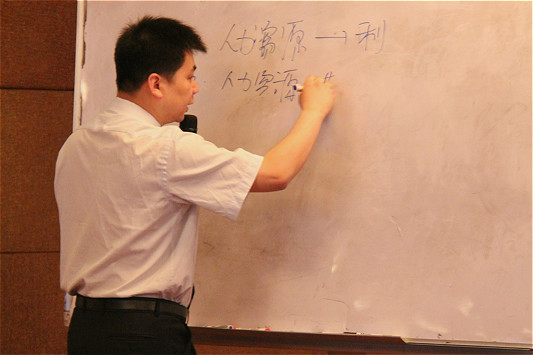 人力资源→利
人力资源